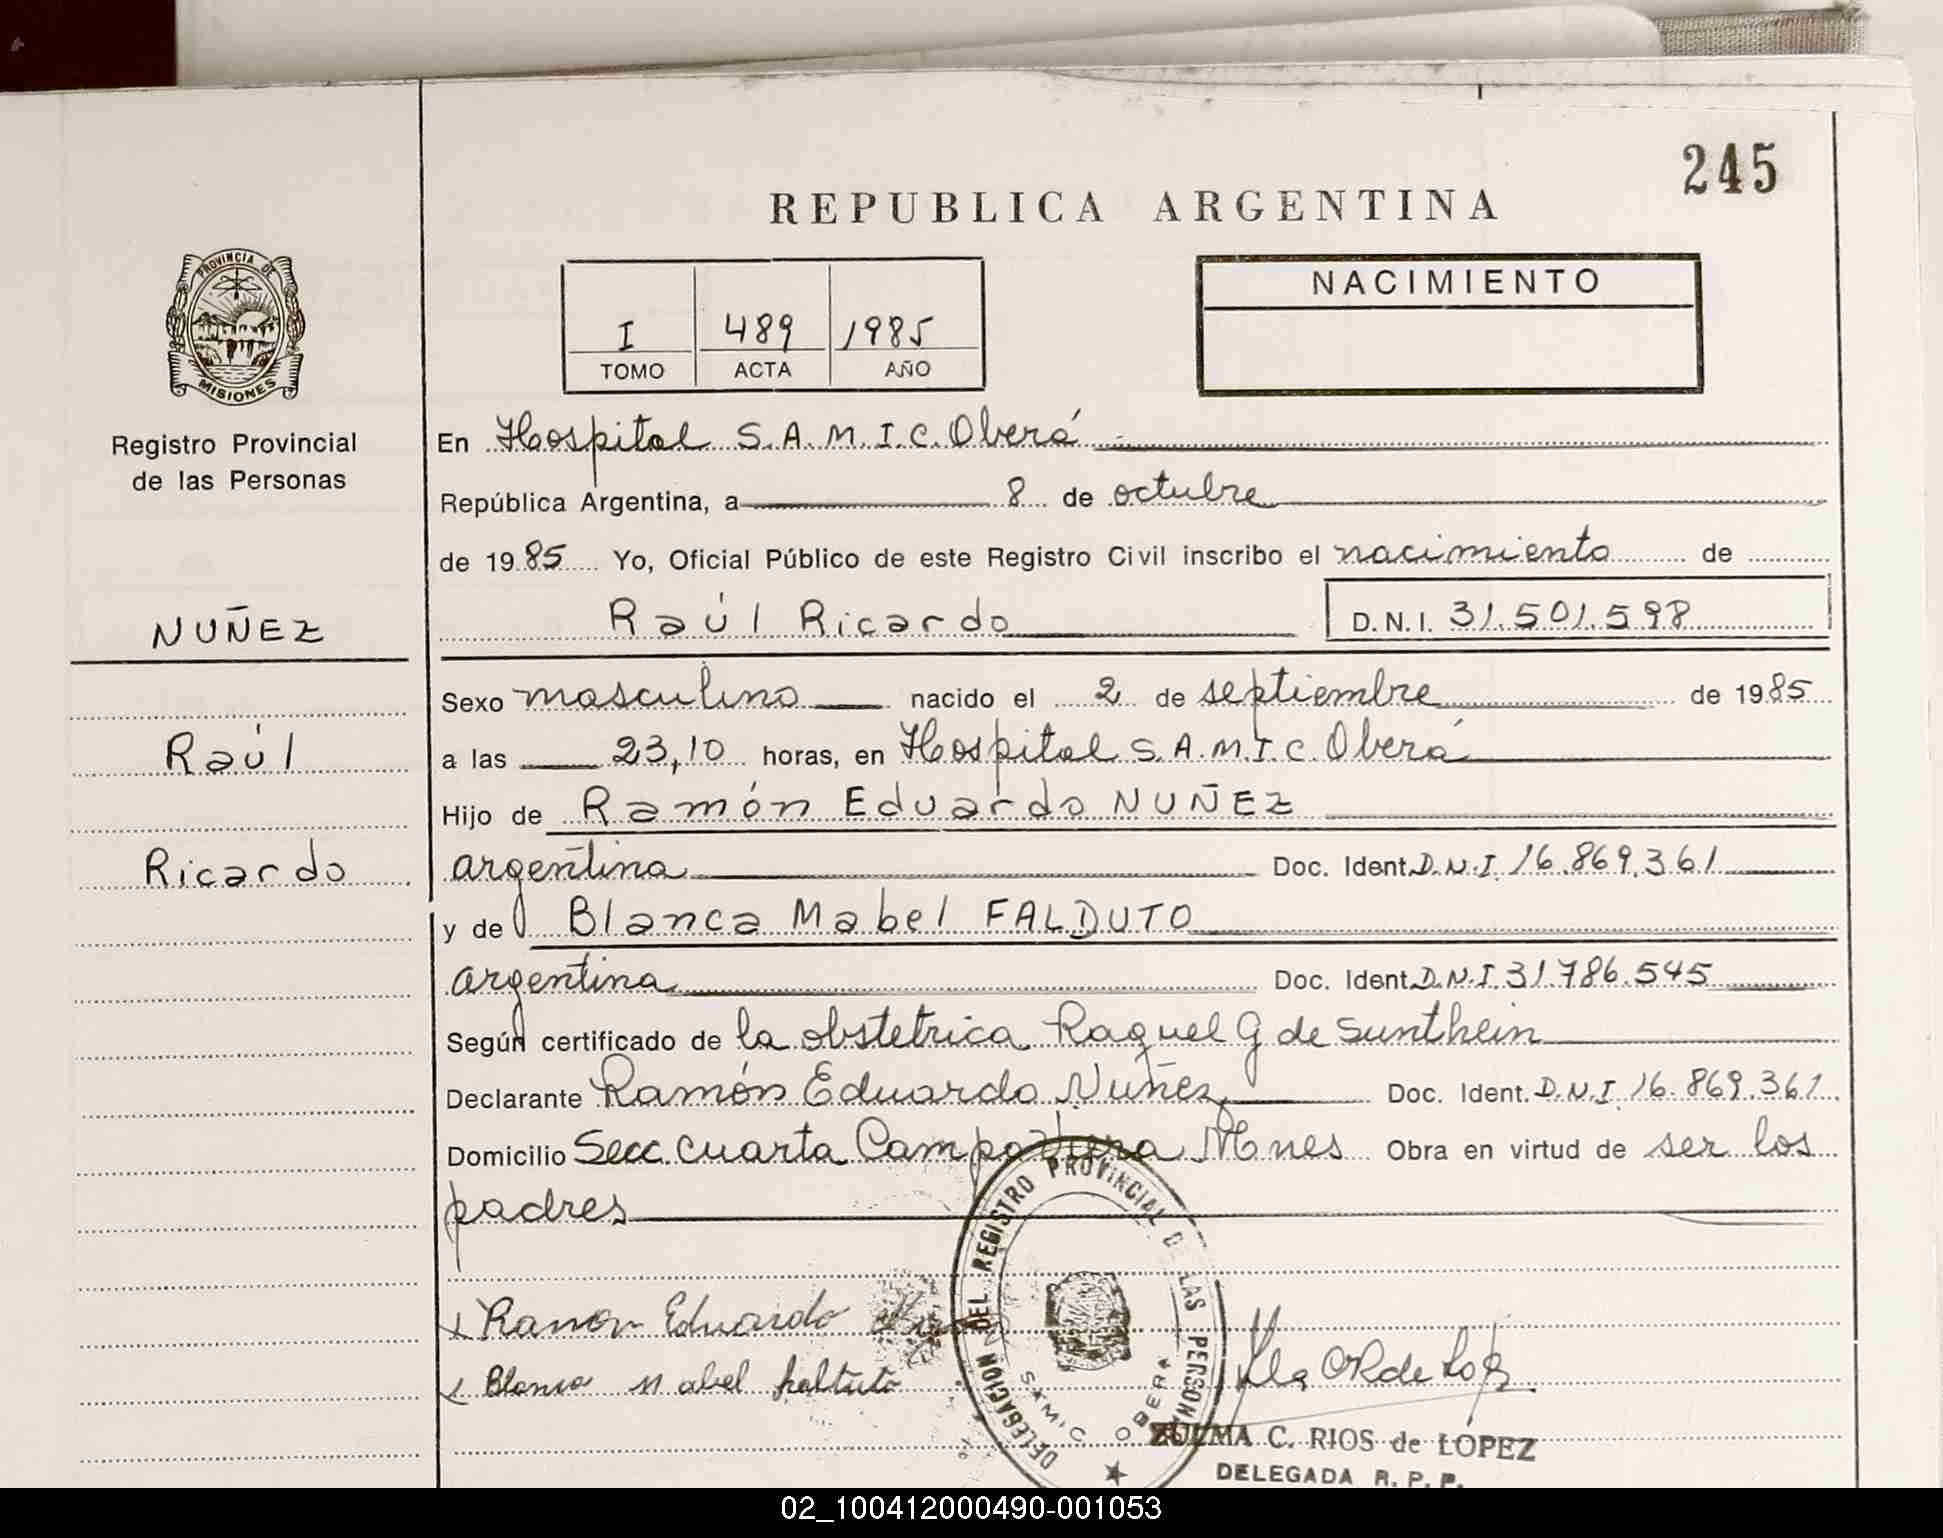 245
REPUBLICA ARGENTINA
PROVINCIA DE
MISIONES
Registro Provincial
de las Personas
NUÑEZ
Raúl
Ricardo
I 489 1985
TOMO ACTA AÑO
NACIMIENTO
En Hospital S.A.M.I.C. Oberá
República Argentina, a 8 de octubre
de 1985 Yo, Oficial Público de este Registro Civil inscribo el nacimiento de
Raúl Ricardo D.N.I. 31.501.598
Sexo masculino nacido el 2 de septiembre de 1985
a las 23,10 horas, en Hospital S.A.M.I.C. Oberá
Hijo de Ramón Eduardo NUÑEZ
argentina Doc. Ident. D.N.I. 16.869.361
y de Blanca Mabel FALDUTO
argentina Doc. Ident. D.N.I 31.786.545
Según certificado de la obstetrica Raquel G de Sunthein
Declarante Ramón Eduardo Nuñez Doc. Ident. D.N.I. 16.869.361
Domicilio Secc. cuarta Campo Viera Mnes Obra en virtud de ser los
padres
Ramon Eduardo
Blanca Mabel Falduto
DELEGACION DEL REGISTRO PROVINCIAL DE LAS PERSONAS
SAMIC OBERA
ZULMA C. RIOS de LOPEZ
DELEGADA R. P. P.
02_100412000490-001053